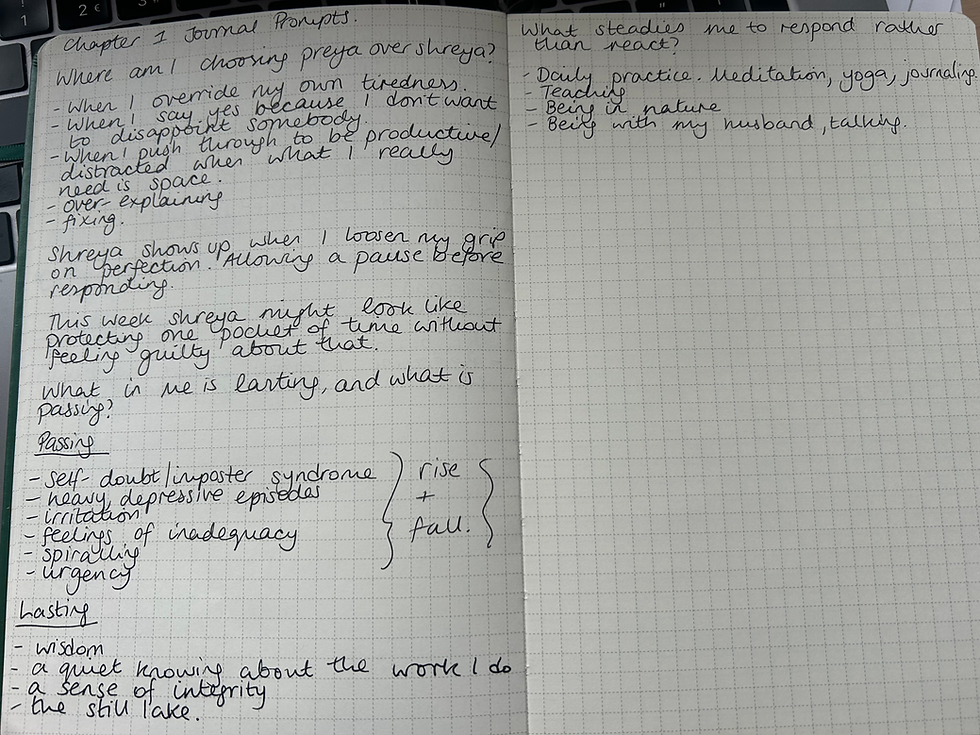 Chapter 1 Journal Prompts.
Where am I choosing preya over shreya?
- When I override my own tiredness.
- When I say yes because I don't want
to disappoint somebody.
- When I push through to be productive/
distracted when what I really
need is space.
- over-explaining
- fixing.
Shreya shows up when I loosen my grip
on perfection. Allowing a pause before
responding.
This week shreya might look like
protecting one pocket of time without
feeling guilty about that.
What in me is lasting, and what is
passing?
Passing
- self-doubt/imposter syndrome
- heavy, depressive episodes
- irritation
- feelings of inadequacy
- spiralling
- urgency
rise
+
fall.
Lasting
- wisdom
- a quiet knowing about the work I do
- a sense of integrity
- the still lake.
What steadies me to respond rather
than react?
- Daily practice. Meditation, yoga, journaling.
- Teaching
- Being in nature
- Being with my husband, talking.